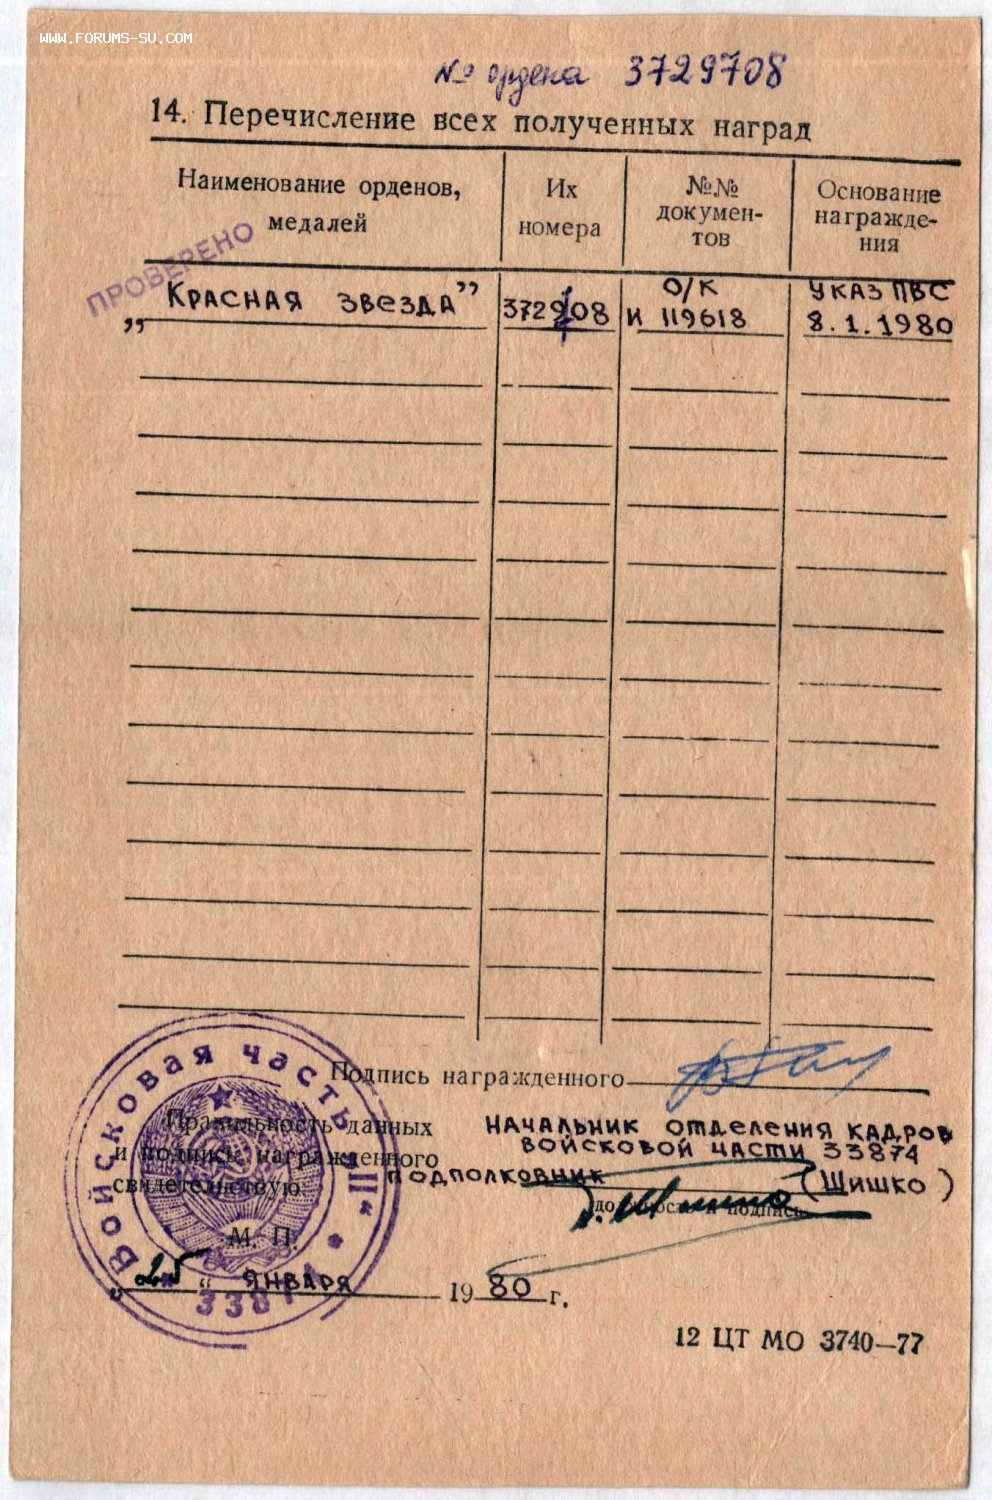 WWW.FORUMS-SU.COM
№ ордена 3729708
14. Перечисление всех полученных наград
Наименование орденов, медалей
Их номера
№№ докумен-
тов
Основание награжде-
ния
ПРОВЕРЕНО
„КРАСНАЯ ЗВЕЗДА”
372908
О/К
И 119618
УКАЗ ПВС
8.1.1980
Подпись награжденного
Правильность данных
и подпись награжденного
свидетельствую:
НАЧАЛЬНИК ОТДЕЛЕНИЯ КАДРОВ
ВОЙСКОВОЙ ЧАСТИ 33874
ПОДПОЛКОВНИК (ШИШКО)
М. П.
„25“ ЯНВАРЯ 1980 г.
Войсковая часть
12 ЦТ МО 3740—77